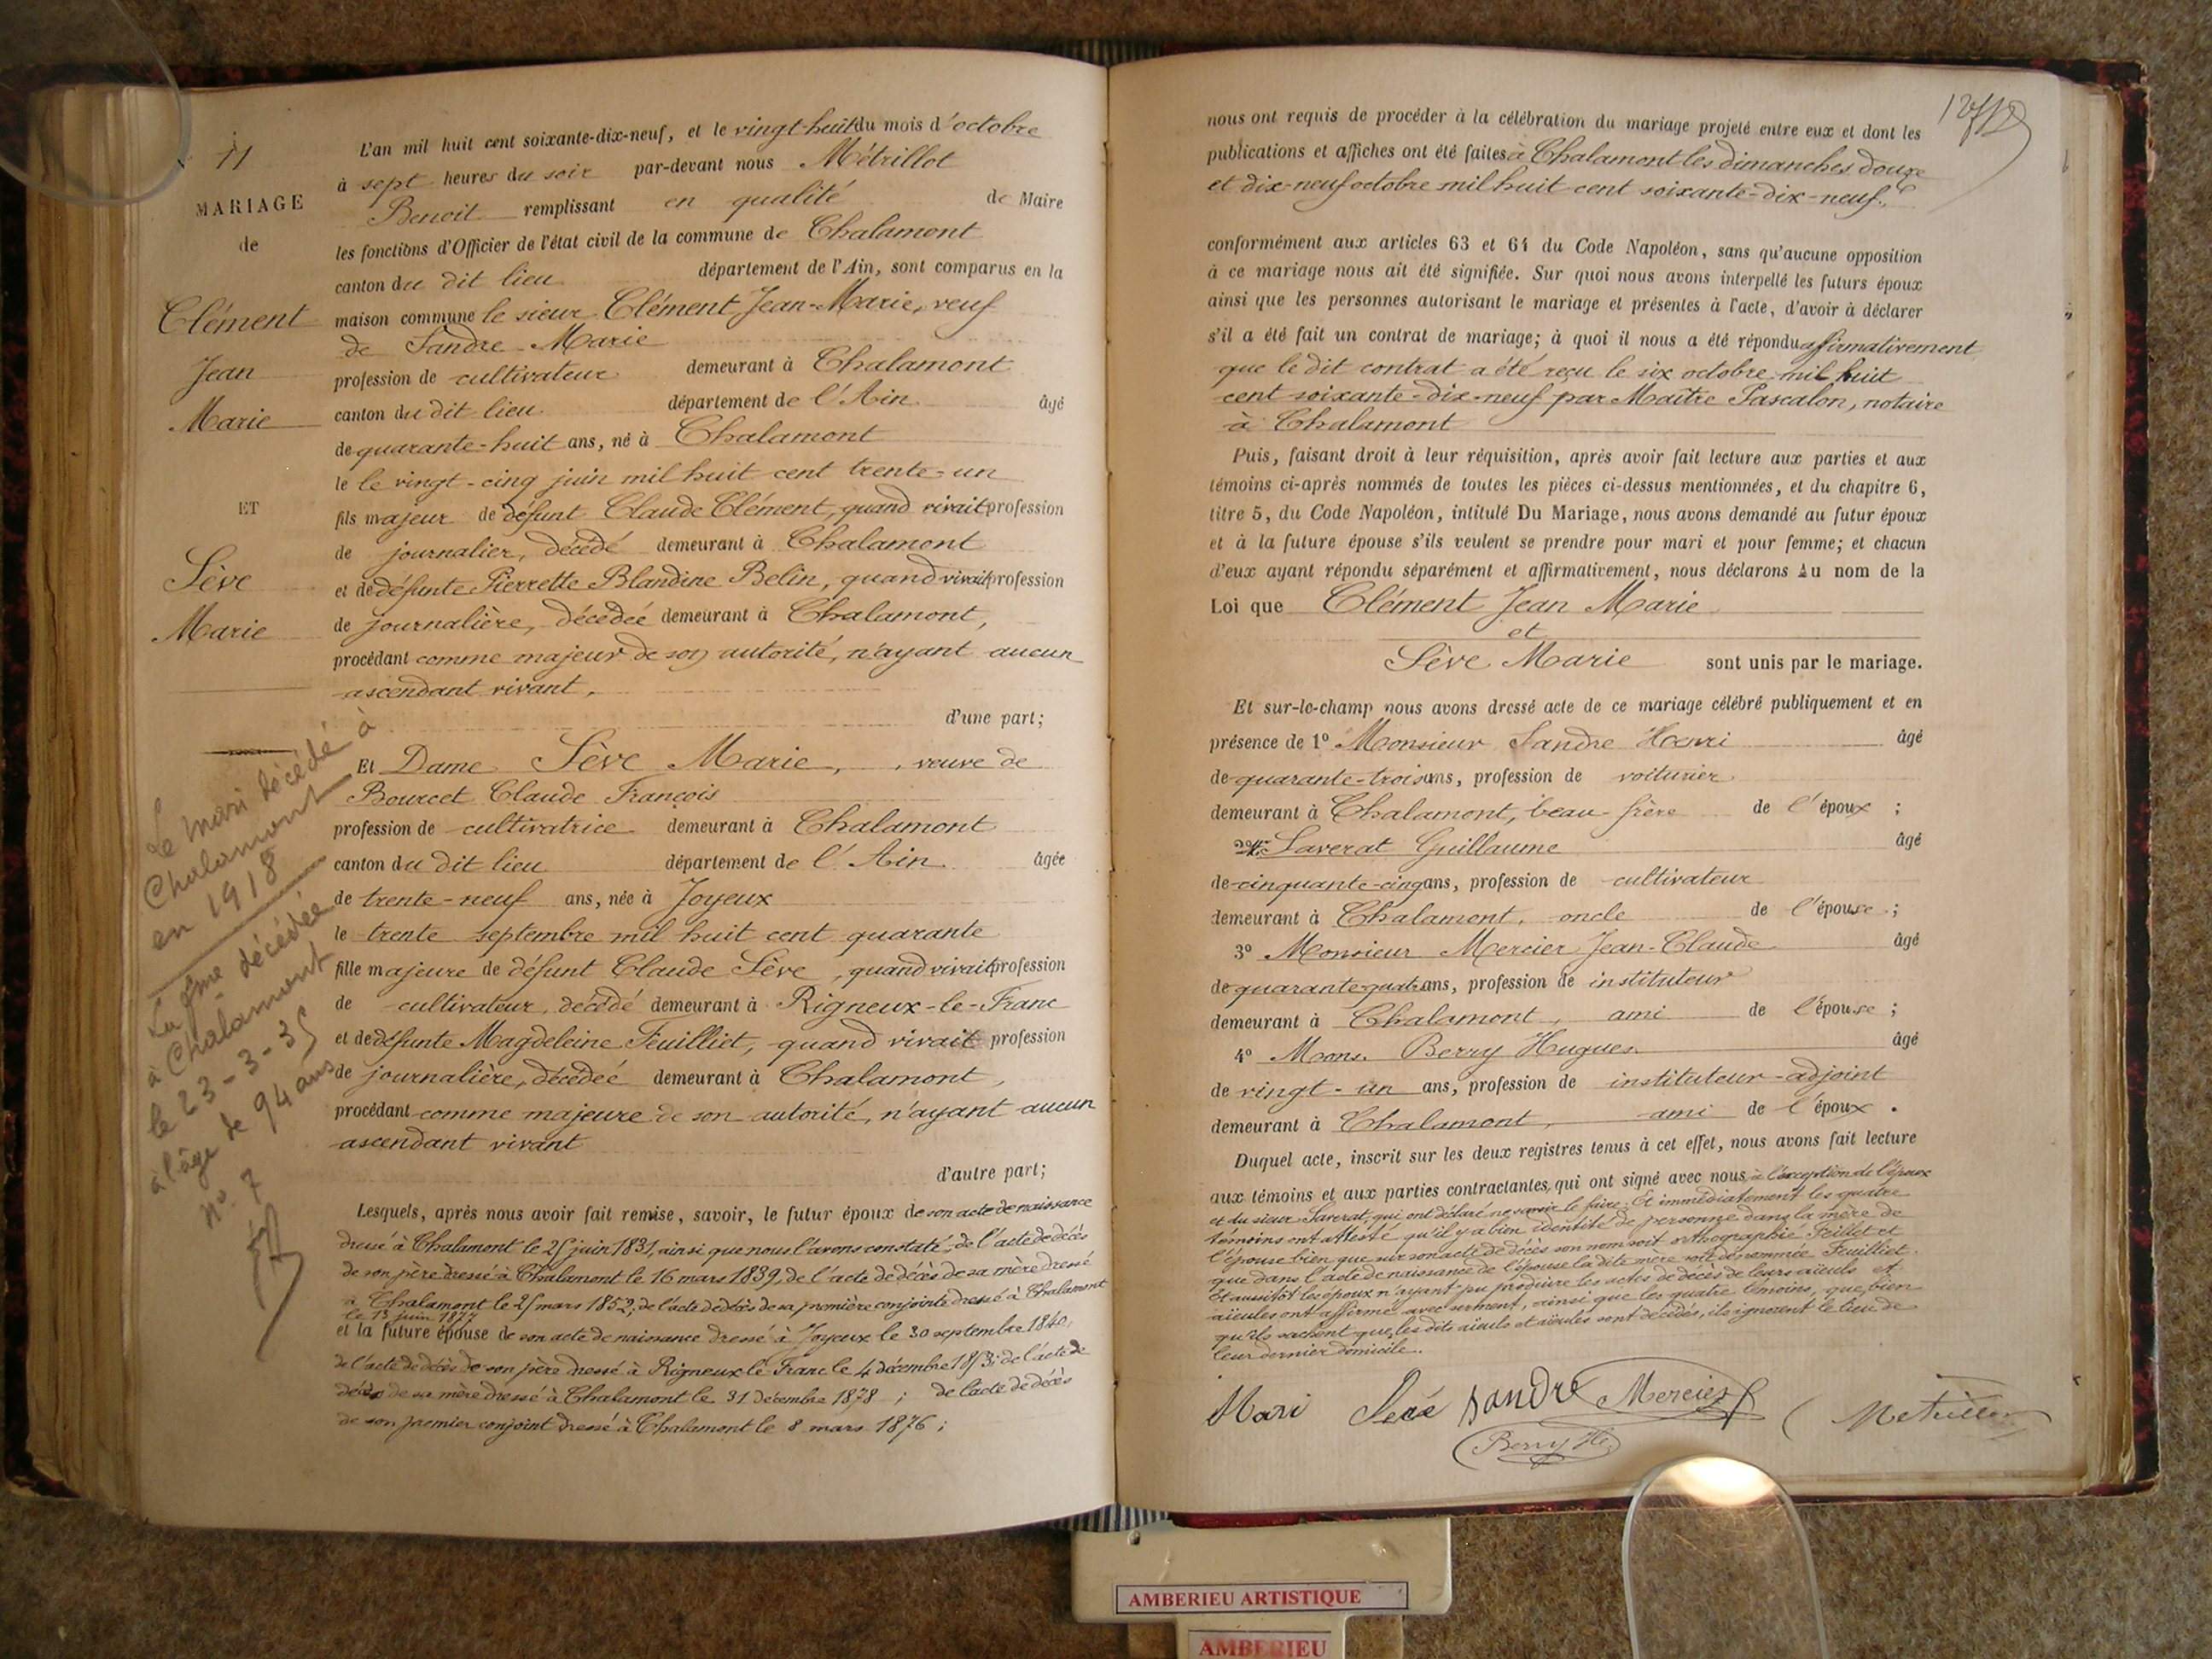 11
MARIAGE
de
Clément
Jean
Marie
ET
Sève
Marie
Le mari décédé à
Chalamont
en 1918
La fme décédée
à Chalamont
le 23-3-35
à l'âge de 94 ans
N° 7
L'an mil huit cent soixante-dix-neuf, et le vingt-huit du mois d'octobre
à sept heures du soir par-devant nous Métrillot
Benoit remplissant en qualité de Maire
les fonctions d'Officier de l'état civil de la commune de Chalamont
canton du dit lieu département de l'Ain, sont comparus en la
maison commune le sieur Clément, Jean-Marie, veuf
de Sandre Marie
profession de cultivateur demeurant à Chalamont
canton du dit lieu département de l'Ain âgé
de quarante-huit ans, né à Chalamont
le le vingt-cinq juin mil huit cent trente-un
fils majeur de défunt Claude Clément, quand vivait profession
de journalier, décédé demeurant à Chalamont
et de défunte Pierrette Blandine Belin, quand vivait profession
de journalière, décédée demeurant à Chalamont,
procédant comme majeur de son autorité, n'ayant aucun
ascendant vivant,
d'une part;
Et Dame Sève Marie, veuve de
Bourcet Claude François
profession de cultivatrice demeurant à Chalamont
canton du dit lieu département de l'Ain âgée
de trente-neuf ans, née à Joyeux
le trente septembre mil huit cent quarante
fille majeure de défunt Claude Sève, quand vivait profession
de cultivateur, décédé demeurant à Rigneux-le-Franc
et de défunte Magdeleine Feuilliet, quand vivait profession
de journalière, décédée demeurant à Chalamont,
procédant comme majeure de son autorité, n'ayant aucun
ascendant vivant
d'autre part;
Lesquels, après nous avoir fait remise, savoir, le futur époux de son acte de naissance
dressé à Chalamont le 25 juin 1831, ainsi que nous l'avons constaté, de l'acte de décès
de son père dressé à Chalamont le 16 mars 1839, de l'acte de décès de sa mère dressé
à Chalamont le 25 mars 1852, de l'acte de décès de sa première conjointe dressé à Chalamont
le 13 juin 1877
et la future épouse de son acte de naissance dressé à Joyeux le 30 septembre 1840,
de l'acte de décès de son père dressé à Rigneux le Franc le 4 décembre 1853; de l'acte de
décès de sa mère dressé à Chalamont le 31 décembre 1878; de l'acte de décès
de son premier conjoint dressé à Chalamont le 8 mars 1876;
nous ont requis de procéder à la célébration du mariage projeté entre eux et dont les
publications et affiches ont été faites à Chalamont les dimanches douze
et dix-neuf octobre mil huit cent soixante-dix-neuf,
conformément aux articles 63 et 64 du Code Napoléon, sans qu'aucune opposition
à ce mariage nous ait été signifiée. Sur quoi nous avons interpellé les futurs époux
ainsi que les personnes autorisant le mariage et présentes à l'acte, d'avoir à déclarer
s'il a été fait un contrat de mariage; à quoi il nous a été répondu affirmativement
que le dit contrat a été reçu le six octobre mil huit
cent soixante-dix-neuf par Maître Pascalon, notaire
à Chalamont
Puis, faisant droit à leur réquisition, après avoir fait lecture aux parties et aux
témoins ci-après nommés de toutes les pièces ci-dessus mentionnées, et du chapitre 6,
titre 5, du Code Napoléon, intitulé Du Mariage, nous avons demandé au futur époux
et à la future épouse s'ils veulent se prendre pour mari et pour femme; et chacun
d'eux ayant répondu séparément et affirmativement, nous déclarons Au nom de la
Loi que Clément Jean Marie
et
Sève Marie sont unis par le mariage.
Et sur-le-champ nous avons dressé acte de ce mariage célébré publiquement et en
présence de 1° Monsieur Sandre Henri âgé
de quarante-trois ans, profession de voiturier
demeurant à Chalamont, beau-frère de l'époux;
Laverat Guillaume âgé
de cinquante-cinq ans, profession de cultivateur
demeurant à Chalamont, oncle de l'épouse;
3° Monsieur Mercier Jean-Claude âgé
de quarante-quatre ans, profession de instituteur
demeurant à Chalamont, ami de l'épouse;
4° Mons. Berry Hugues âgé
de vingt-un ans, profession de instituteur-adjoint
demeurant à Chalamont, ami de l'époux.
Duquel acte, inscrit sur les deux registres tenus à cet effet, nous avons fait lecture
aux témoins et aux parties contractantes, qui ont signé avec nous à l'exception de l'époux
et du sieur Laverat, qui ont déclaré ne savoir le faire; Et immédiatement les quatre
témoins ont attesté qu'il y a bien identité de personne dans la mère de
l'épouse bien que sur son acte de décès son nom soit orthographié Feillet et
que dans l'acte de naissance de l'épouse la dite mère soit dénommée Feuilliet.
Et aussitôt les époux n'ayant pu produire les actes de décès de leurs aïeuls et
aïeules ont affirmé avec serment, ainsi que les quatre témoins, que bien
qu'ils sachent que les dits aïeuls et aïeules sont décédés, ils ignorent le lieu de
leur dernier domicile.
Mari Sevé Sandre Mercier Metrillot
Berry Hs
AMBERIEU ARTISTIQUE
AMBERIEU